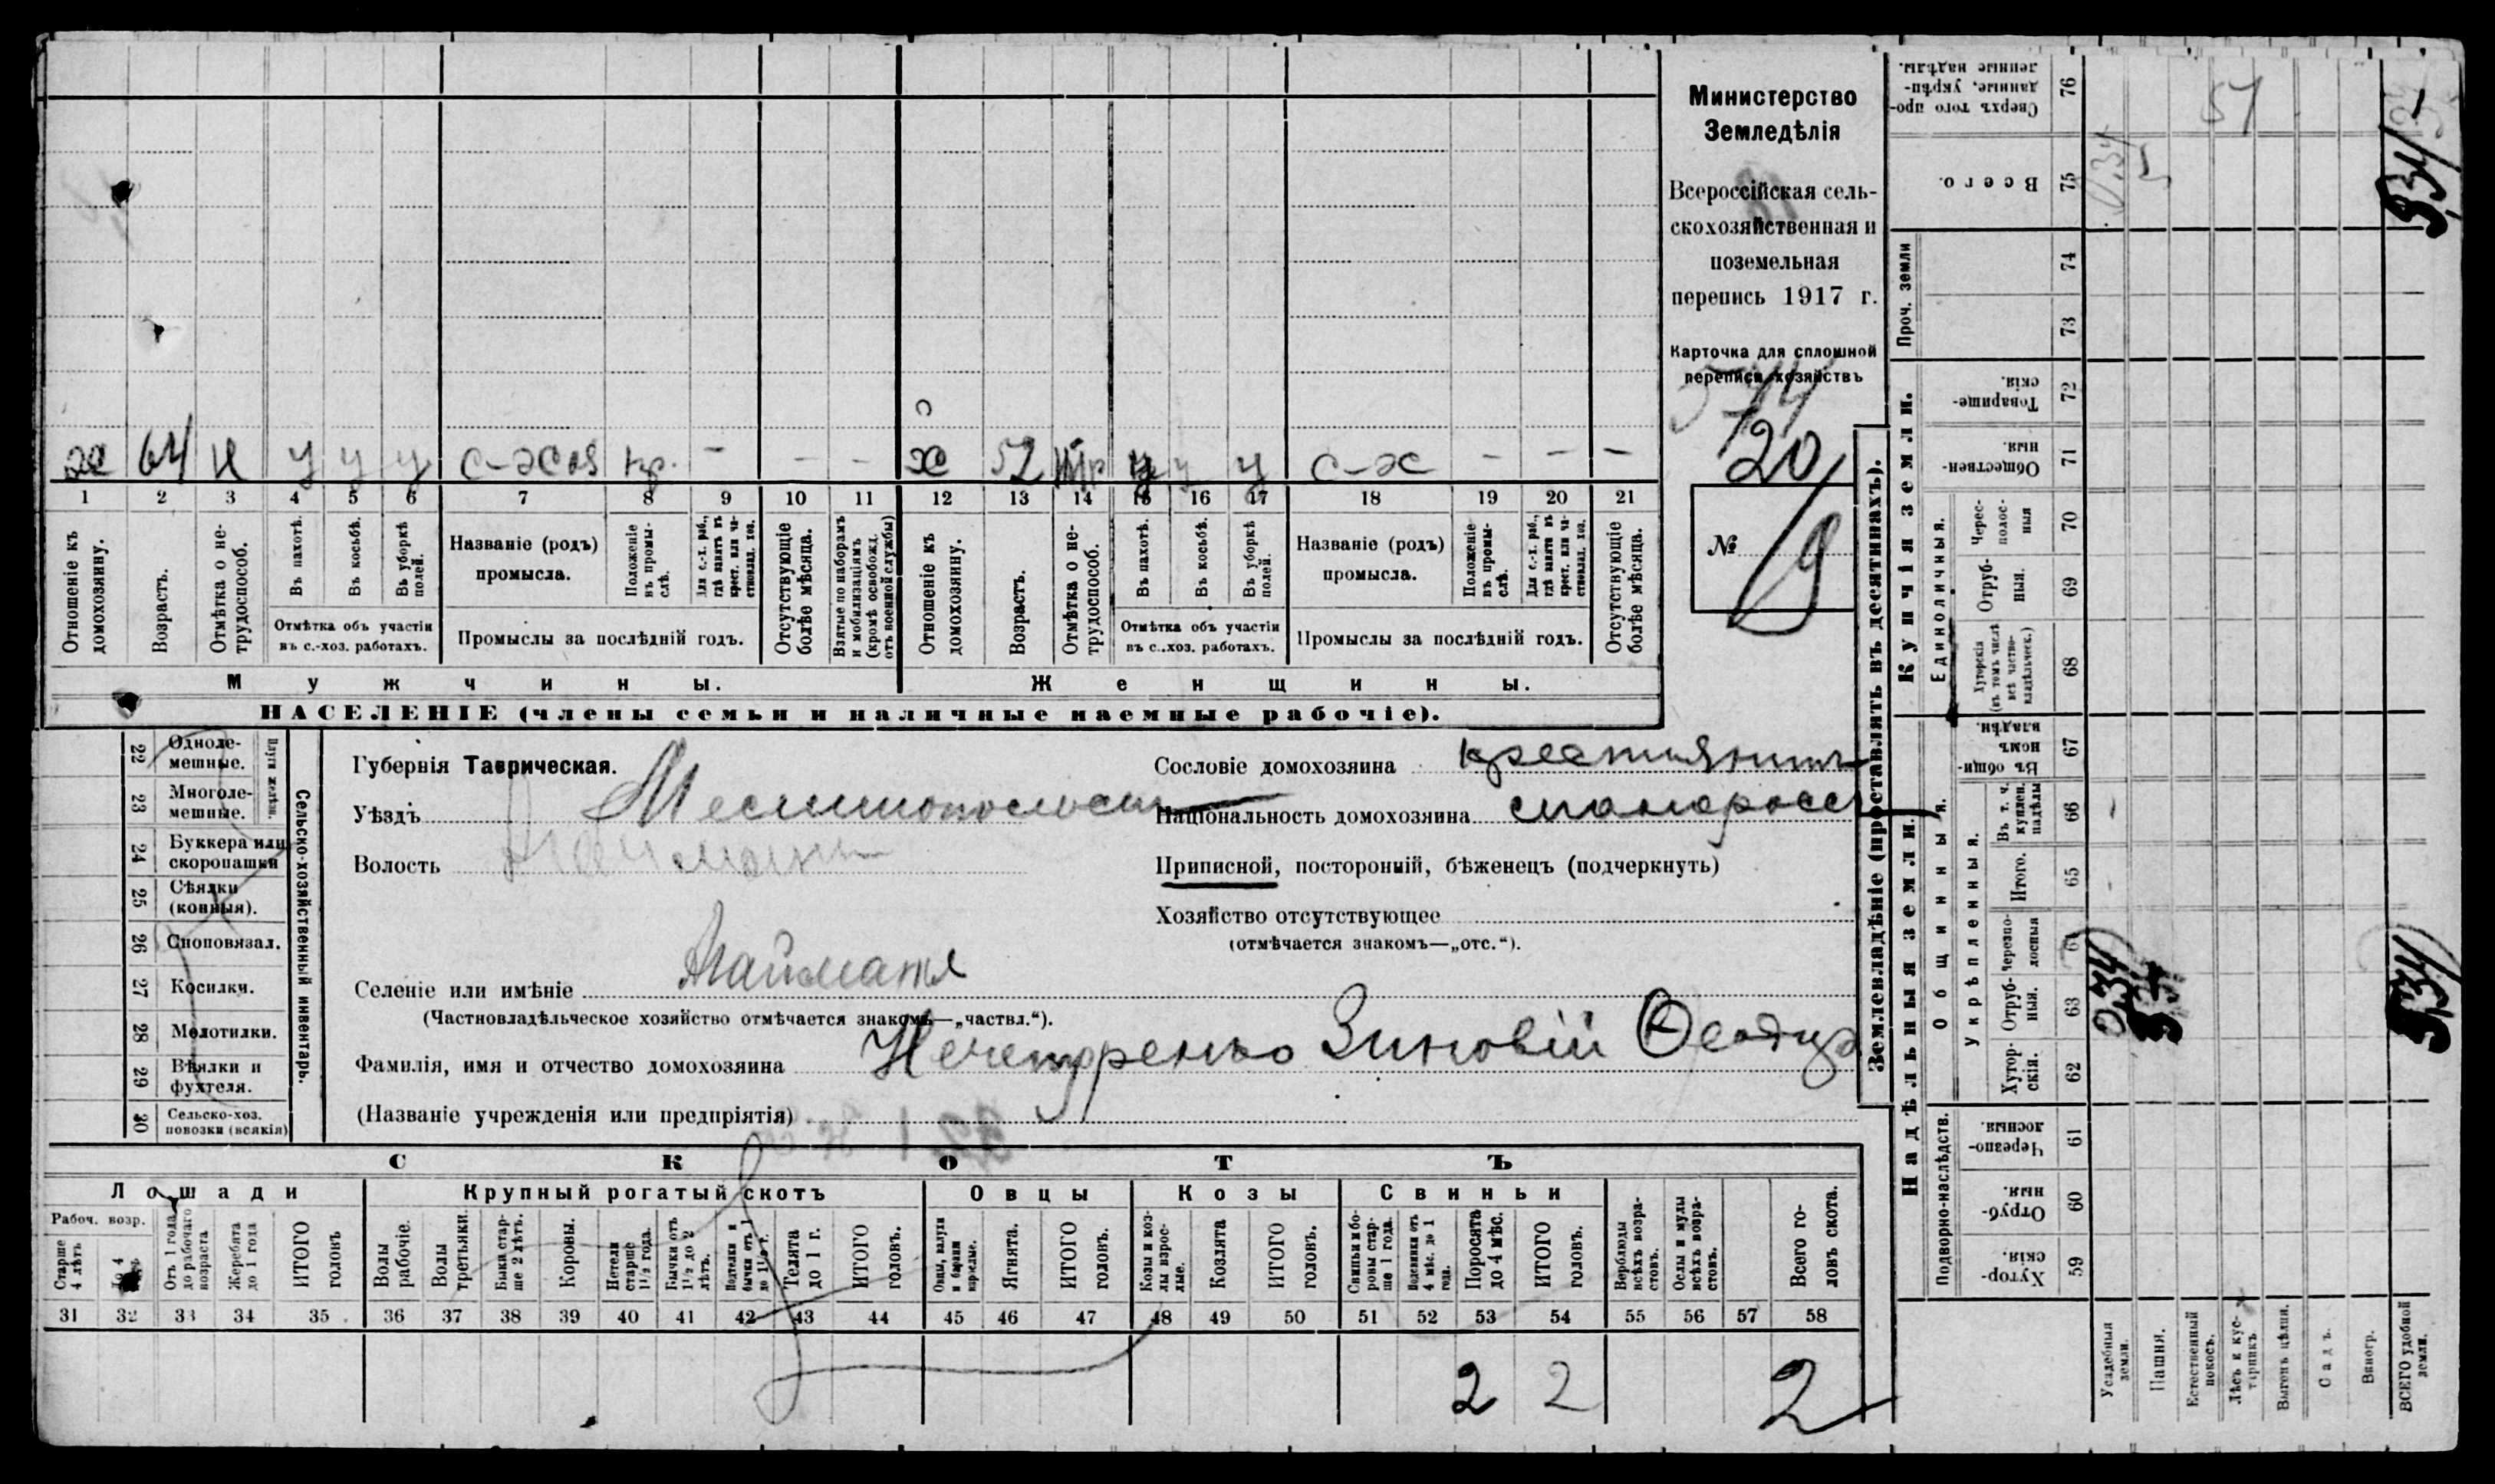 х 64 н у у у с-хоз кр. - - -
х 52 у у у с-х - - -
1 2 3 4 5 6 7 8 9 10 11 12 13 14 15 16 17 18 19 20 21
Отношеніе къ домохозяину.
Возрастъ.
Отмѣтка о не-трудоспособ.
Въ пахотѣ.
Въ косьбѣ.
Въ уборкѣ полей.
Отмѣтка объ участіи
въ с.-хоз. работахъ.
Названіе (родъ)
промысла.
Положеніе въ промы-слѣ.
Для с.-х. раб., гдѣ занятъ въ крест. или ча-стновлад. хоз.
Промыслы за послѣдній годъ.
Отсутствующіе болѣе мѣсяца.
Взятые по наборамъ и мобилизаціямъ (кромѣ освобожд. отъ военной службы)
Отношеніе къ домохозяину.
Возрастъ.
Отмѣтка о не-трудоспособ.
Въ пахотѣ.
Въ косьбѣ.
Въ уборкѣ полей.
Отмѣтка объ участіи
въ с..хоз. работахъ.
Названіе (родъ)
промысла.
Положеніе въ промы-слѣ.
Для с.-х. раб., гдѣ занята въ крест. или ча-стновлад. хоз.
Промыслы за послѣдній годъ.
Отсутствующіе болѣе мѣсяца.
Мужчины.
Женщины.
НАСЕЛЕНІЕ (члены семьи и наличные наемные рабочіе).
Министерство
Земледѣлія
Всероссійская сель-
скохозяйственная и
поземельная
перепись 1917 г.
Карточка для сплошной
переписи хозяйствъ
20
№ 9
Сельско-хозяйственный инвентарь.
Плуги желѣзн.
22 Одноле-мешные.
23 Многоле-мешные.
24 Буккера или скоропашки
25 Сѣялки (конныя).
26 Сноповязал.
27 Косилки.
28 Молотилки.
29 Вѣялки и фухтеля.
30 Сельско-хоз. повозки (всякія)
Губернія Таврическая.
Уѣздъ Мелитопольск
Волость Найманъ
Селеніе или имѣніе Найманъ
(Частновладѣльческое хозяйство отмѣчается знакомъ—„частвл.“).
Фамилія, имя и отчество домохозяина Нечепоренко Зиновій Ѳеодор
(Названіе учрежденія или предпріятія)
Сословіе домохозяина крестьянинъ
Національность домохозяина малоросс
Приписной, посторонній, бѣженецъ (подчеркнуть)
Хозяйство отсутствующее
(отмѣчается знакомъ—„отс.“).
СКОТЪ
Лошади
Крупный рогатый скотъ
Овцы
Козы
Свиньи
Рабоч. возр.
Старше 4 лѣтъ
Отъ 1 года до рабочаго возраста
Жеребята до 1 года
ИТОГО головъ
Волы рабочіе.
Волы третьяки.
Быки стар-ше 2 лѣтъ.
Коровы.
Нетели старше 1½ года.
Бычки отъ 1½ до 2 лѣтъ.
Подтелки и бычки отъ 1 до 1½ г.
Телята до 1 г.
ИТОГО головъ.
Овцы, валухи и бараны взрослые.
Ягнята.
ИТОГО головъ.
Козы и коз-лы взрос-лые.
Козлята
ИТОГО головъ.
Свиньи и бо-ровы стар-ше 1 года.
Подсвинки отъ 4 мѣс. до 1 года.
Поросята до 4 мѣс.
ИТОГО головъ.
Верблюды всѣхъ возра-стовъ.
Ослы и мулы всѣхъ возра-стовъ.
Всего го-ловъ скота.
31 32 33 34 35 36 37 38 39 40 41 42 43 44 45 46 47 48 49 50 51 52 53 54 55 56 57 58
2 2 2
Землевладѣніе (проставлять въ десятинахъ).
Купчія земли.
Надѣльныя земли.
Сверхъ того про-данные, укрѣп-ленные надѣлы. 76
Всего. 75
Проч. земли
74
73
Товарище-скія. 72
Обществен-ныя. 71
Единоличныя.
Черес-полос-ныя 70
Отруб-ныя. 69
Хуторскія (въ томъ числѣ всѣ частно-владѣльческ.) 68
Общинныя.
Въ общи-номъ владѣн. 67
Укрѣпленныя.
Въ т. ч. куплен. надѣлы 66
Итого. 65
Черезпо-лосныя 64
Отруб-ныя. 63
Хутор-скія. 62
Подворно-наслѣдств.
Черезпо-лосныя. 61
Отруб-ныя. 60
Хутор-скія. 59
Усадебныя земли.
Пашня.
Естественный покосъ.
Лѣсъ и кус-тарникъ
Выгонъ цѣлин.
Садъ.
Виногр.
ВСЕГО удобной земли.
034